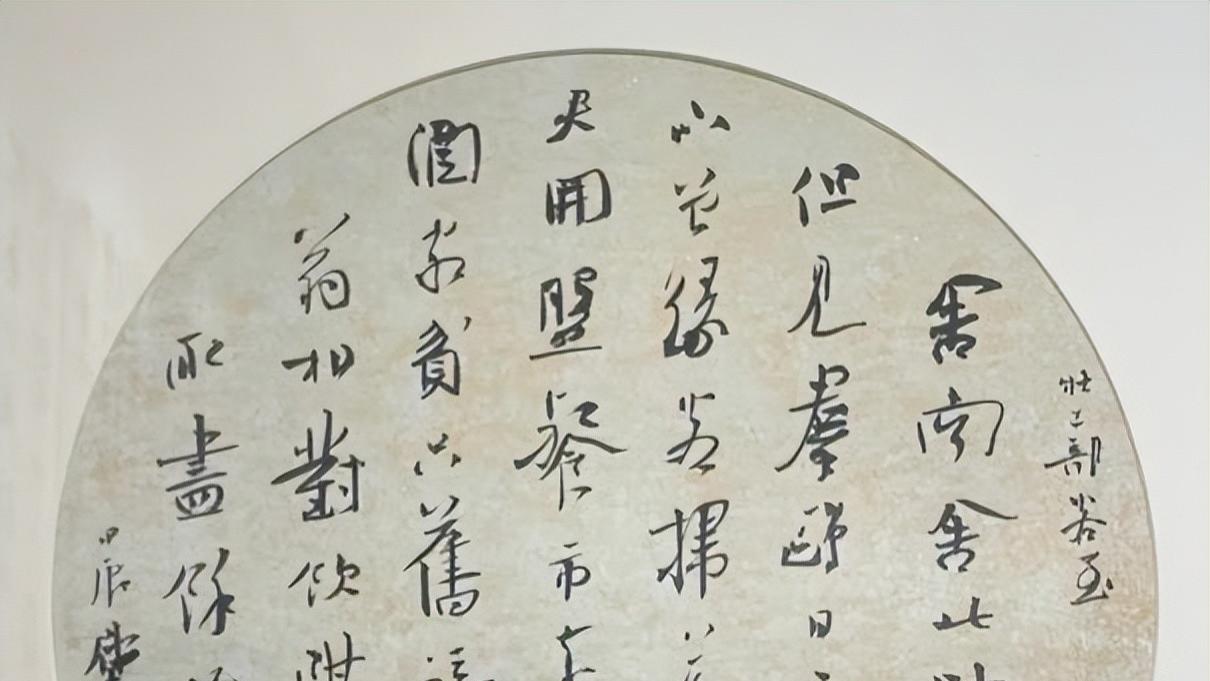 杜工部客至
舍南舍北
但見羣鷗日
不曾緣客掃
君開盤飧市
酒家貧只舊
翁相對飲隔
取盡餘